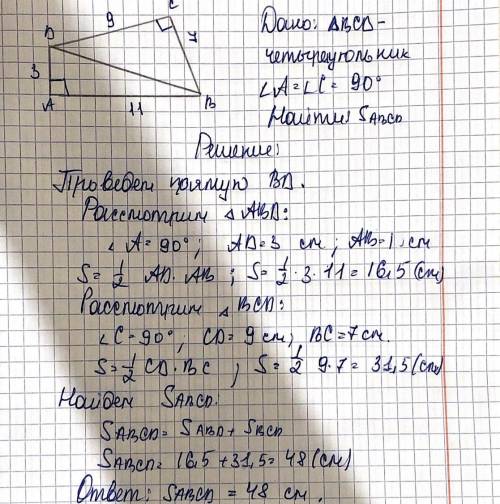 C
9
D
7
3
A
11
B
Дано: ABCD –
четыреугольник
∠A = ∠C = 90°
Найти: SABCD
Решение:
Проведем прямую BD.
Рассмотрим △ ABD:
∠ A = 90° ; AD = 3 см ; AB = 11 см
S = 1/2 AD · AB ; S = 1/2 · 3 · 11 = 16,5 (см)
Рассмотрим △ BCD:
∠ C = 90° , CD = 9 см ; BC = 7 см.
S = 1/2 CD · BC ; S = 1/2 9 · 7 = 31,5 (см)
Найдем SABCD:
SABCD = SABD + SBCD
SABCD = 16,5 + 31,5 = 48 (см)
Ответ: SABCD = 48 см .